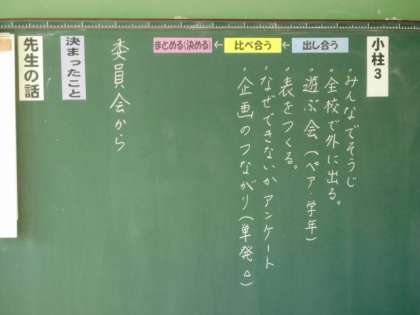 小柱3
出し合う
比べ合う
まとめる(決める)
・みんなでそうじ
・全校で外に出る。
・遊ぶ会(ペア・学年)
・表をつくる。
・なぜできないかアンケート
・企画のつながり(単発△)
委員会から
決まったこと
先生の話